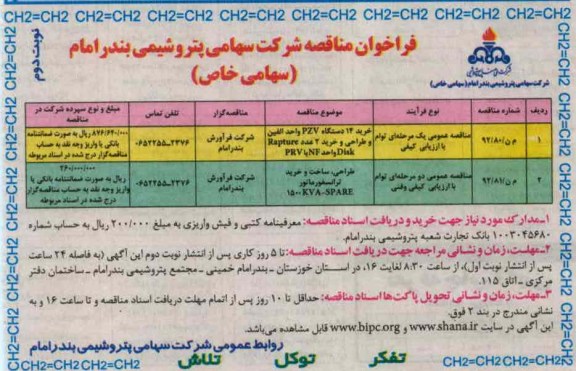 CH2=CH2 CH2=CH2 CH2=CH2 CH2=CH2 CH2=CH2 CH2=CH2 CH2=CH2
نوبت دوم
فراخوان مناقصه شرکت سهامی پتروشیمی بندر امام
(سهامی خاص)
شرکت سهامی پتروشیمی بندر امام (سهامی خاص)
ردیف | شماره مناقصه | نوع فرآیند | موضوع مناقصه | مناقصه‌گزار | تلفن تماس | مبلغ و نوع سپرده شرکت در مناقصه
۱ | م ن/۹۲/۸۰ | مناقصه عمومی یک مرحله‌ای توام با ارزیابی کیفی | خرید ۱۴ دستگاه PZV واحد الفین و طراحی و خرید ۲ عدد Rapture Disk واحد NF یا PRV | شرکت فرآورش بندرامام | ۰۶۵۲۲۵۵-۲۳۷۶ | ۸۷۶/۶۴۰/۰۰۰ ریال به صورت ضمانتنامه بانکی یا واریز وجه نقد به حساب مناقصه‌گزار درج شده در اسناد مربوطه
۲ | م ن/۹۲/۸۱ | مناقصه عمومی دو مرحله‌ای توام با ارزیابی کیفی وفنی | طراحی، ساخت و خرید ترانسفورماتور ۱۵۰۰ KVA-SPARE | شرکت فرآورش بندرامام | ۰۶۵۲۲۵۵-۲۳۷۶ | ۲۶۰/۰۰۰/۰۰۰ ریال به صورت ضمانتنامه بانکی یا واریز وجه نقد به حساب مناقصه‌گزار درج شده در اسناد مربوطه
۱-مدارک مورد نیاز جهت خرید و دریافت اسناد مناقصه: معرفینامه کتبی و فیش واریزی به مبلغ ۲۰۰/۰۰۰ ریال به حساب شماره
۱۰۰۳۰۴۵۶۸۰ بانک تجارت شعبه پتروشیمی بندرامام.
۲-مهلت، زمان و نشانی مراجعه جهت دریافت اسناد مناقصه: تا ۵ روز کاری پس از انتشار نوبت دوم این آگهی (به فاصله ۲۴ ساعت
پس از انتشار نوبت اول)، از ساعت ۸:۳۰ لغایت ۱۶، در اســتان خوزستان ـ بندرامام خمینی ـ مجتمع پتروشیمی بندرامام ـ ساختمان دفتر
مرکزی ـ اتاق ۱۱۵.
۳-مهلت، زمان و نشانی تحویل پاکت‌ها اسناد مناقصه: حداقل تا ۱۰ روز پس از اتمام مهلت دریافت اسناد مناقصه و تا ساعت ۱۶ و به
نشانی مندرج در بند ۲ فوق.
این آگهی در سایت www.shana.ir و www.bipc.org قابل مشاهده می‌باشد.
روابط عمومی شرکت سهامی پتروشیمی بندر امام
تفکر توکل تلاش
CH2=CH2 CH2=CH2
CH2=CH2 CH2=CH2